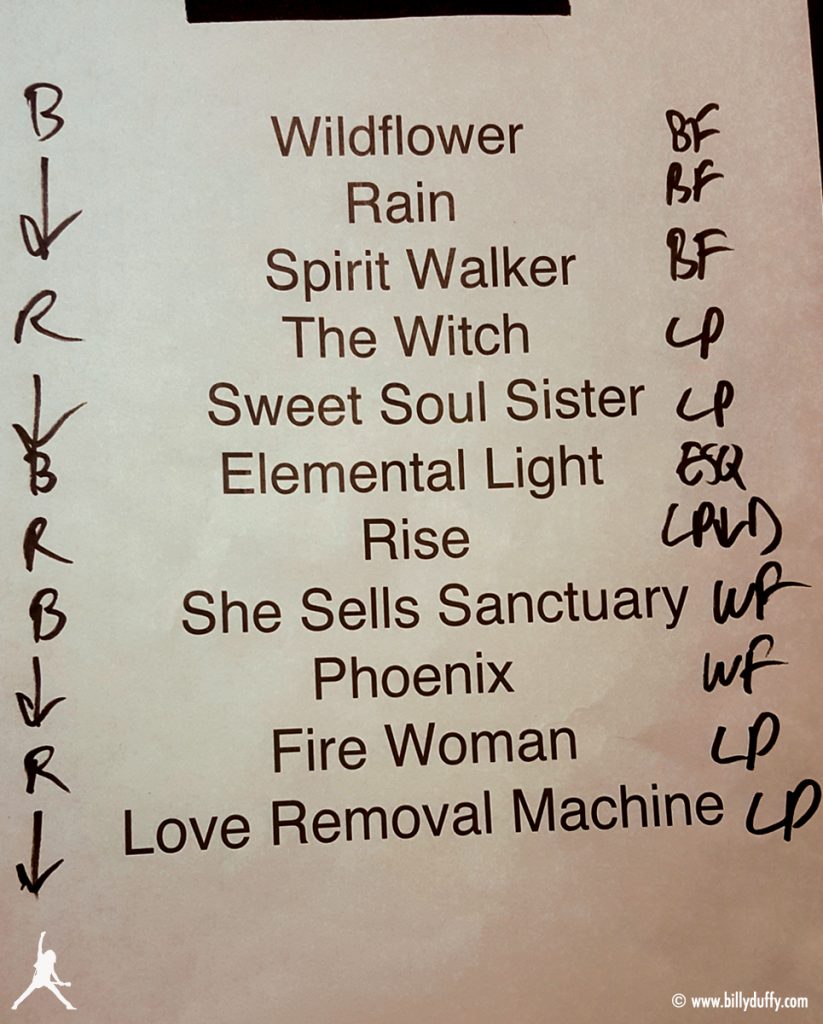 B Wildflower BF
↓ Rain BF
Spirit Walker BF
R The Witch LP
↓ Sweet Soul Sister LP
B Elemental Light ESQ
R Rise
B She Sells Sanctuary WF
↓ Phoenix WF
R Fire Woman LP
↓ Love Removal Machine LP
© www.billyduffy.com